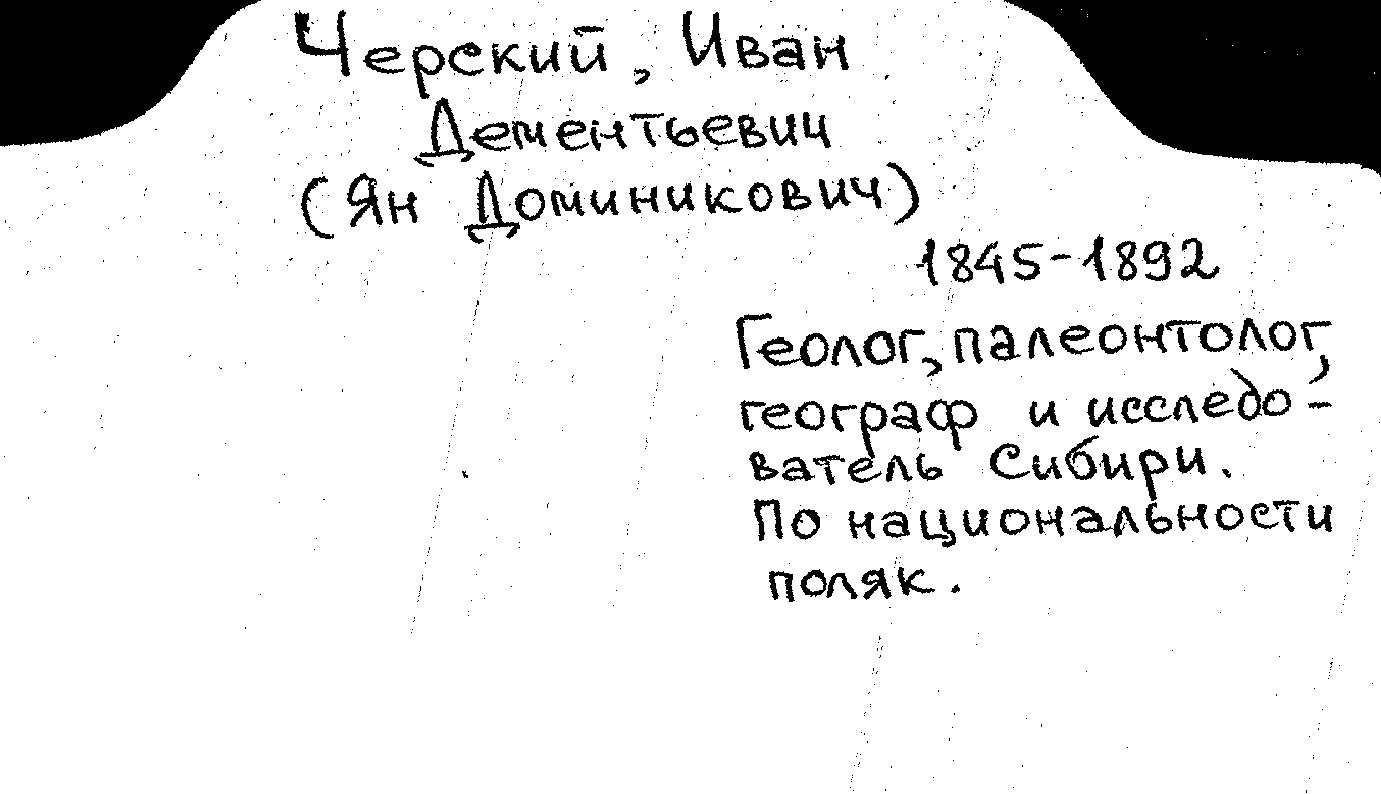 Черский, Иван
Дементьевич
(Ян Доминикович)
1845-1892
Геолог, палеонтолог,
географ и исследо-
ватель Сибири.
По национальности
поляк.